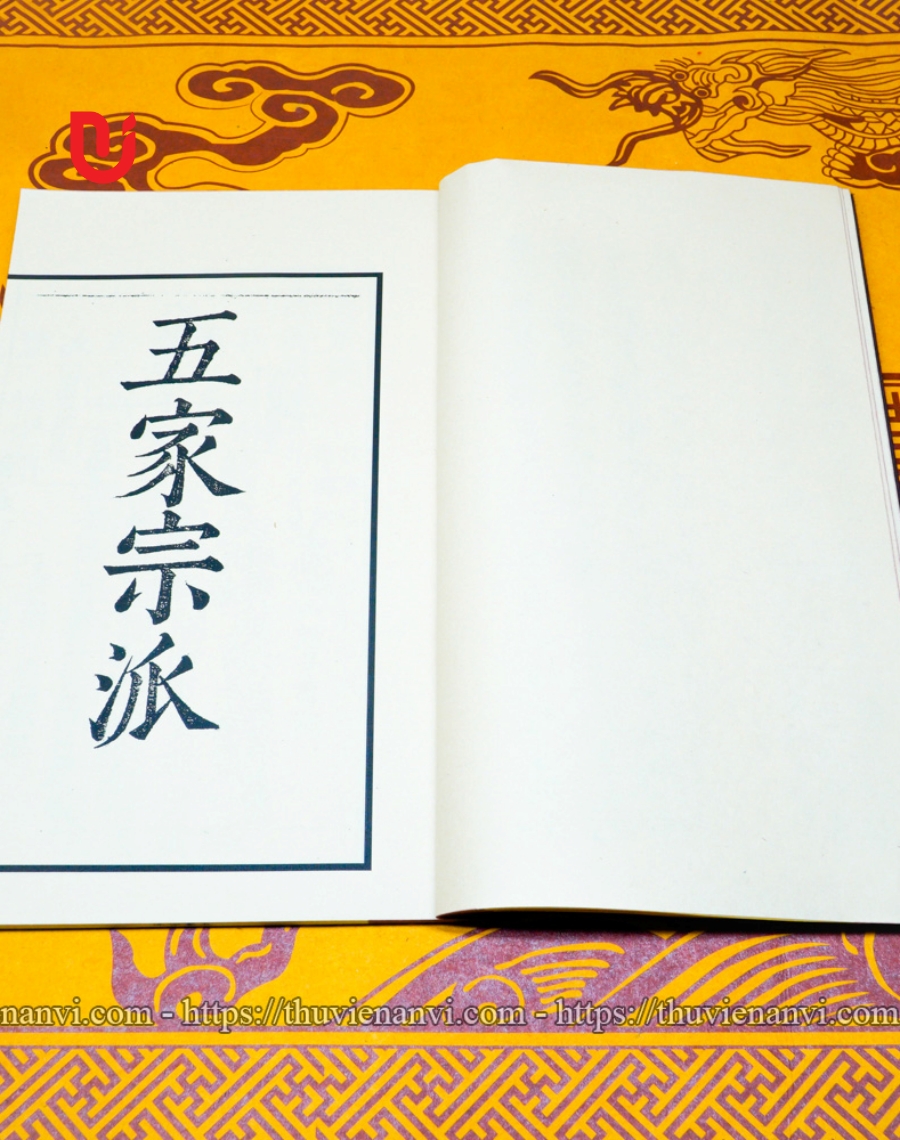 五家宗派
nanvi.com - https://thuvienanvi.com - https://thuvienanvi.com